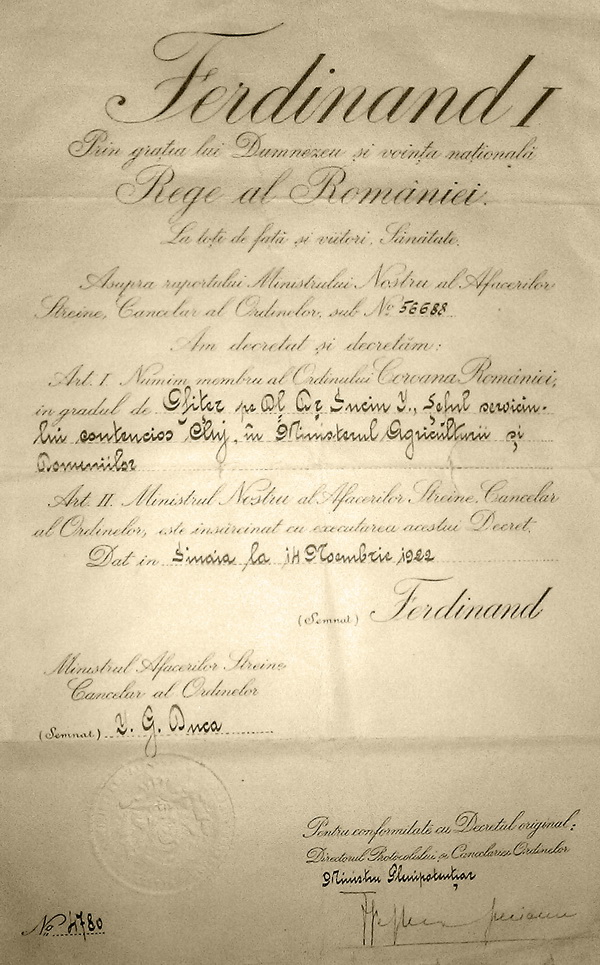 Ferdinand I
Prin grația lui Dumnezeu și voința națională
Rege al României.
La toți de față și viitori, Sănătate.
Asupra raportului Ministrului Nostru al Afacerilor
Streine, Cancelar al Ordinelor, sub No 56688
Am decretat și decretăm:
Art. I Numim membru al Ordinului Coroana României,
in gradul de Ofițer pe Dl Dr Suciu I., Șeful serviciu-
lui contencios Cluj, în Ministerul Agriculturii și
Domeniilor
Art. II. Ministrul Nostru al Afacerilor Streine, Cancelar
al Ordinelor, este însărcinat cu executarea acestui Decret.
Dat in Sinaia la 14 Noembrie 1922
(Semnat) Ferdinand
Ministrul Afacerilor Streine
Cancelar al Ordinelor
(Semnat) I. G. Duca
Pentru conformitate cu Decretul original:
Directorul Protocolului și Cancelariei Ordinelor
Ministru Plenipotențiar
No 4780